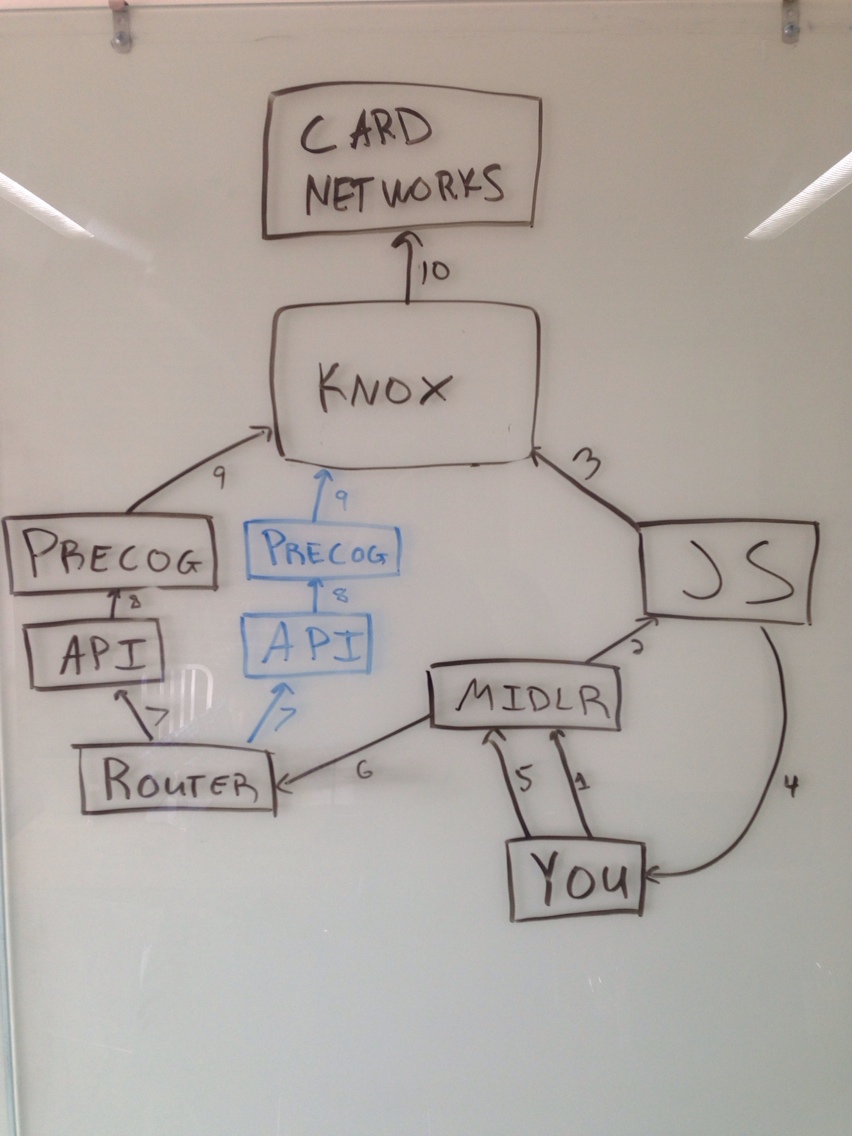 CARD
NETWORKS
10
KNOX
3
9
9
PRECOG
PRECOG
JS
8
8
API
API
2
MIDLR
7
7
6
5
1
4
ROUTER
YOU